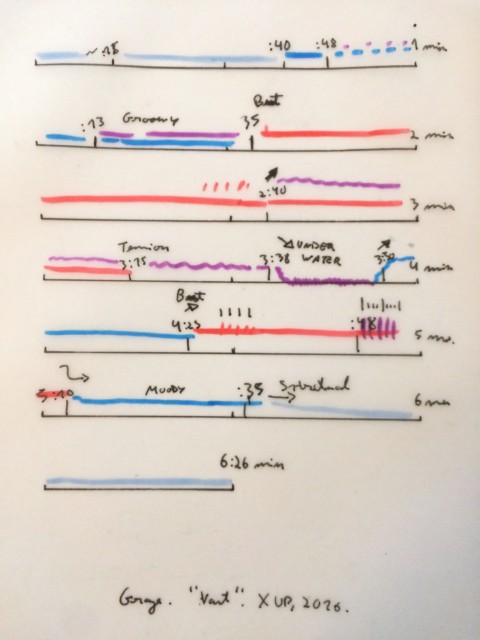 ~:18 :40 :48 1 min
Beat
:13 Groovy 35 2 min
2:40 3 min
Tension 3:15 3:38 UNDER WATER 4 min
Beat
4:23 :48 5 mo.
5:10 MOODY :35 Spiritual 6 min
6:26 min
"Vast". X UP, 2026.